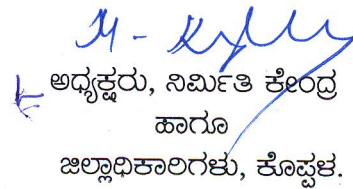 ಅಧ್ಯಕ್ಷರು, ನಿರ್ಮಿತಿ ಕೇಂದ್ರ
ಹಾಗೂ
ಜಿಲ್ಲಾಧಿಕಾರಿಗಳು, ಕೊಪ್ಪಳ.